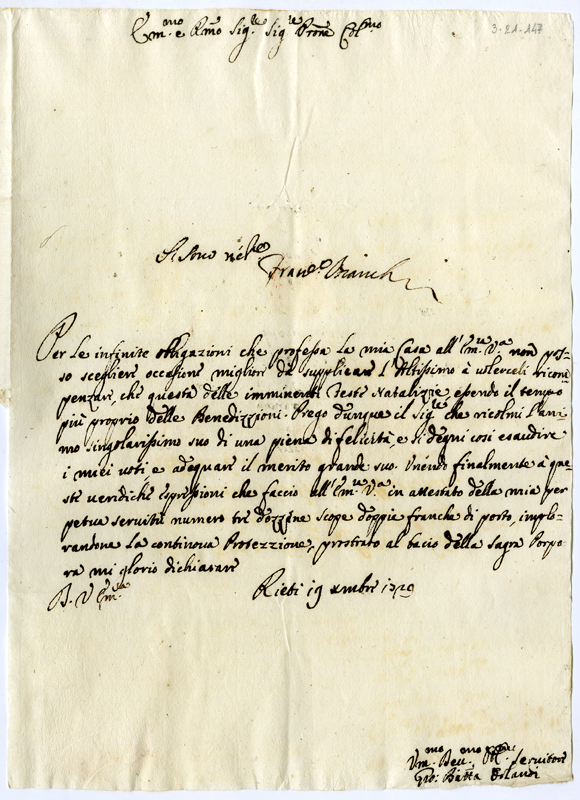 Em.mo e Rmo Sig.re Sig.re Prone Col.mo
3-21-147
Fran.co Bianchi
Per le infinite obligazioni che professa la mia Casa all'Em.za V.a non pos-
so scegliere occasione miglior da supplicare l'Altissimo à volerceli ricom-
penzare, che questa delle imminenti Feste Natalizzie, essendo il tempo
più proprio delle Benedizzioni. Prego dunque il Sig.re che ricolmi l'ani
mo singolarissimo suo di una piena di felicità, e si degni così esaudire
i miei voti e adequare il merito grande suo. Unendo finalmente à que
ste veridiche espressioni che faccio all'Em.za V.a in attestato della mia per
petua servitù numero tre dozzine scope doppie franche di porto, implo-
randone la continova Protezzione, prostrato al bacio della Sagra Porpo
ra mi glorio dichiarare
D. V. Em.za Rieti 19 xmbre 1729
Um.mo Dev.mo Obl. Servitore
Gio: Batta Orlandi